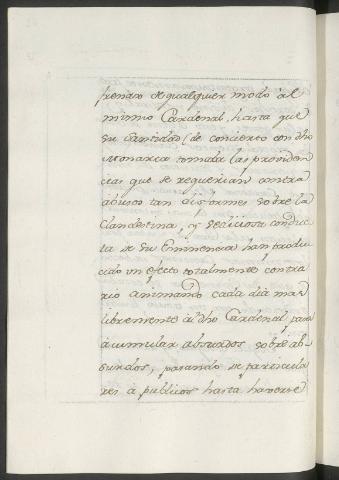 frendro de qualquier modo àl
mismo Cardenal, hasta que
su Santidad (de concierto con dho
Monarca tomada las providen
cias que se requerian contra
abusos tan disformes sobre la
Clandestina, y sediciosa conduc
ta de su Eminencia han produ
cido un efecto totalmente contra
rio animando cada dia mas
libremente à dho Cardenal para
àcumular absurdos sobre ab
surdos, pasando de particula
res à publicos hasta haverse